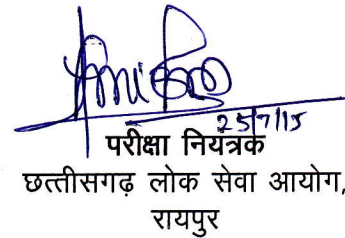 25/7/15
परीक्षा नियत्रक
छत्तीसगढ़ लोक सेवा आयोग,
रायपुर